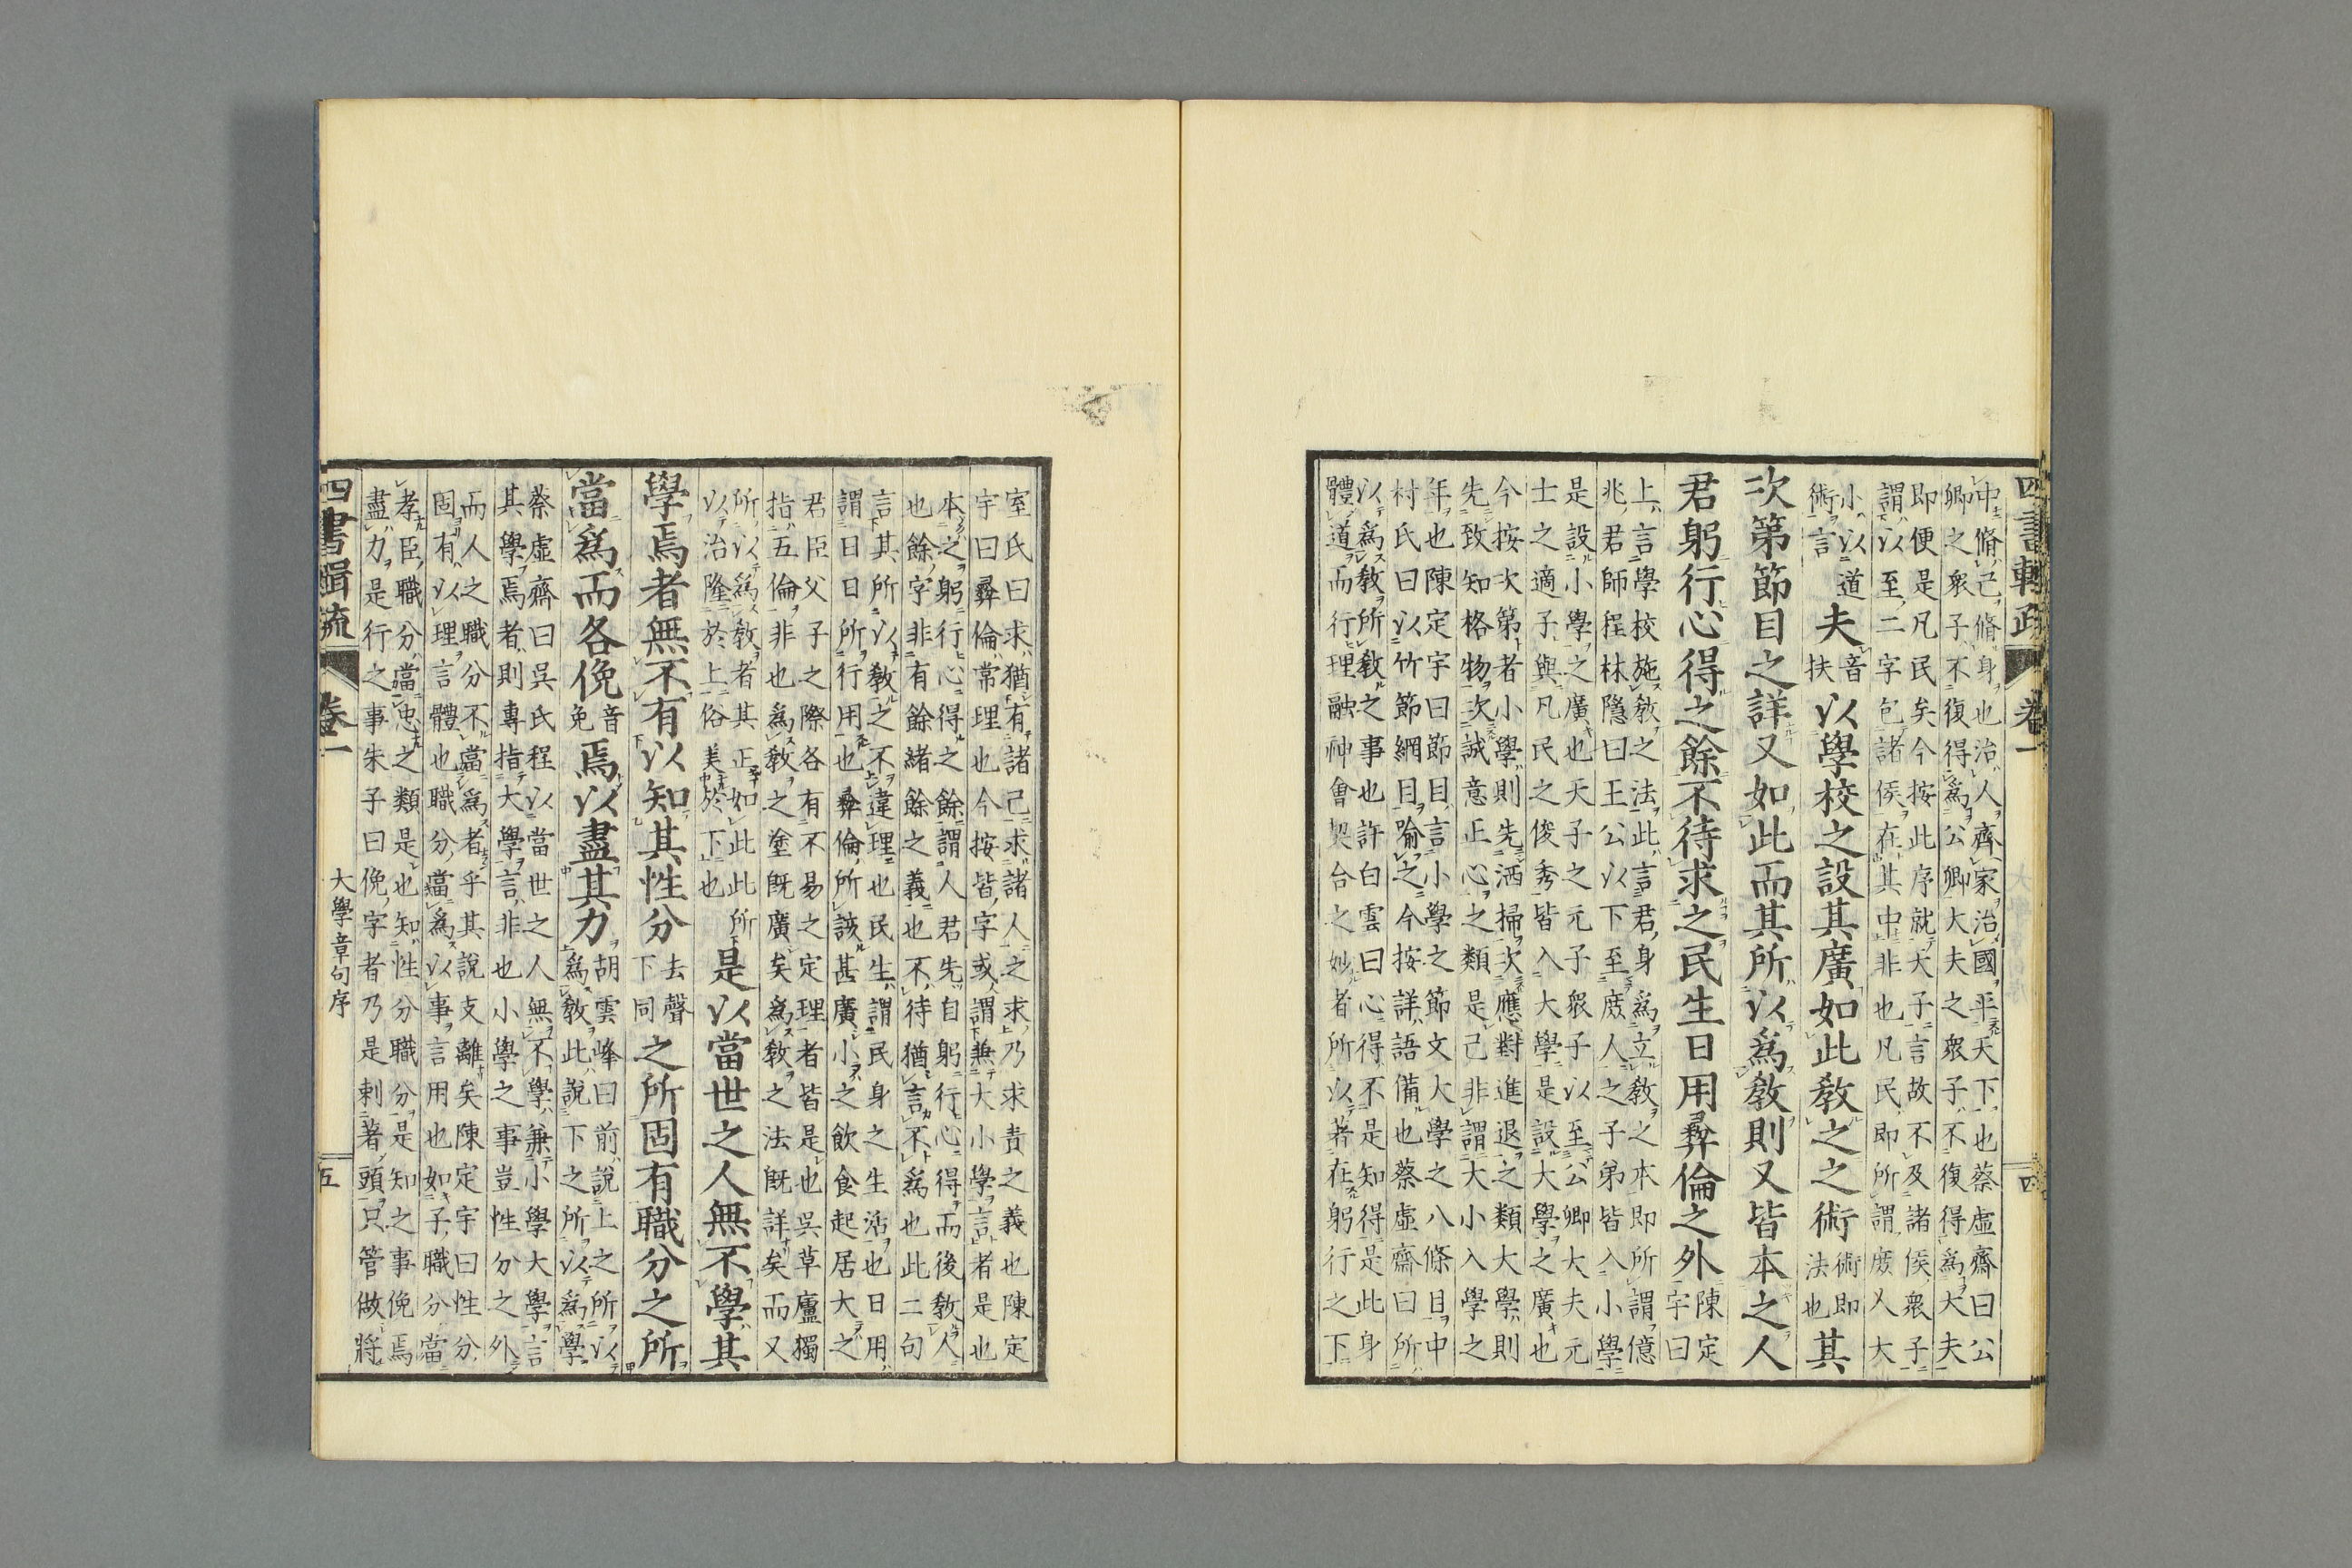 四書輯疏 卷一 四
中脩己脩身也治人齊家治國平天下也蔡虛齋曰公
卿之衆子不復得爲公卿大夫之衆子不復得爲大夫
即便是凡民矣今按此序就天子言故不及諸侯衆子
謂以至二字包諸侯在其中非也凡民即所謂庶人大
小以道
術言
夫
音
扶
以學校之設其廣如此敎之之術
術即
法也
其
次第節目之詳又如此而其所以爲敎則又皆本之人
君躬行心得之餘不待求之民生日用彛倫之外
陳定
宇曰
上言學校施敎之法此言君身爲立敎之本即所謂億
兆君師程林隱曰王公以下至庶人之子弟皆入小學
是設小學之廣也天子之元子衆子以至公卿大夫元
士之適子與凡民之俊秀皆入大學是設大學之廣也
今按次第者小學則先洒掃次應對進退之類大學則
先致知格物次誠意正心之類是己非謂大小入學之
年也陳定宇曰節目言小學之節文大學之八條目中
村氏曰以竹節網目喻之今按詳語備也蔡虛齋曰所
以爲敎所敎之事也許白雲曰心得不是知得是此身
體道而行理融神會契合之妙者所以著在躬行之下
室氏曰求猶有諸己求諸人之求乃求責之義也陳定
宇曰彛倫常理也今按皆字或謂兼大小學言者是也
本之躬行心得之餘謂人君先自躬行心得而後敎人
也餘字非有餘緒餘之義也不待猶言不爲也此二句
言其所以敎之不違理也民生謂民身之生活也日用
謂日日所行用也彛倫所該甚廣小之飲食起居大之
君臣父子之際各有不易之定理者皆是也吳草廬獨
指五倫非也爲敎之塗既廣矣爲敎之法既詳矣而又
所以爲敎者其正如此此所
以治隆於上俗美於下也
是以當世之人無不學其
學焉者無不有以知其性分
去聲
下同
之所固有職分之所
當爲而各俛
音
免
焉以盡其力
胡雲峰曰前說上之所以
爲敎此說下之所以爲學
蔡虛齋曰吳氏程以當世之人無不學兼小學大學言
其學焉者則專指大學言非也小學之事豈性分之外
而人之職分不當爲者乎其說支離矣陳定宇曰性分
固有以理言體也職分當爲以事言用也如子職分當
孝臣職分當忠之類是也知性分職分是知之事俛焉
盡力是行之事朱子曰俛字者乃是刺著頭只管做將
四書輯疏 卷一 大學章句序 五